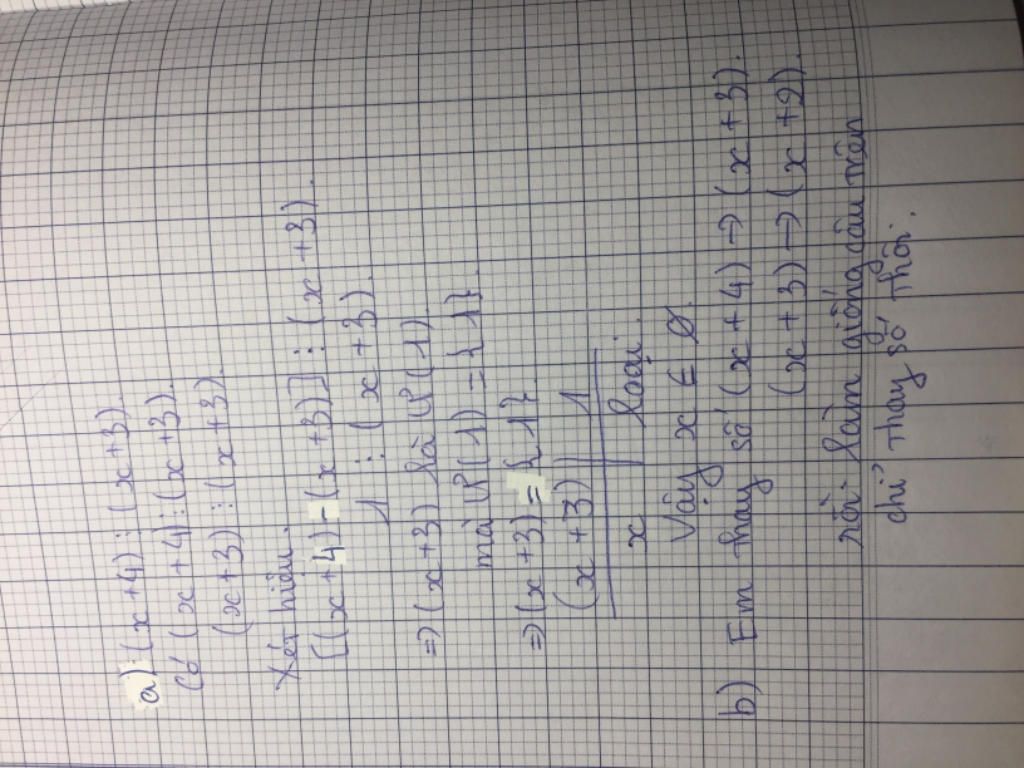 a) (x+4) ⋮ (x+3).
Có (x+4) ⋮ (x+3).
(x+3) ⋮ (x+3).
Xét hiệu.
[(x+4) - (x+3)] ⋮ (x+3).
1 ⋮ (x+3).
⇒ (x+3) là Ư(1).
mà Ư(1) = {1}.
⇒ (x+3) = {1}.
(x+3) | 1
x | loại.
Vậy x ∈ ∅.
b) Em thay số (x+4) → (x+3).
(x+3) → (x+2).
rồi làm giống câu trên
chỉ thay số thôi.